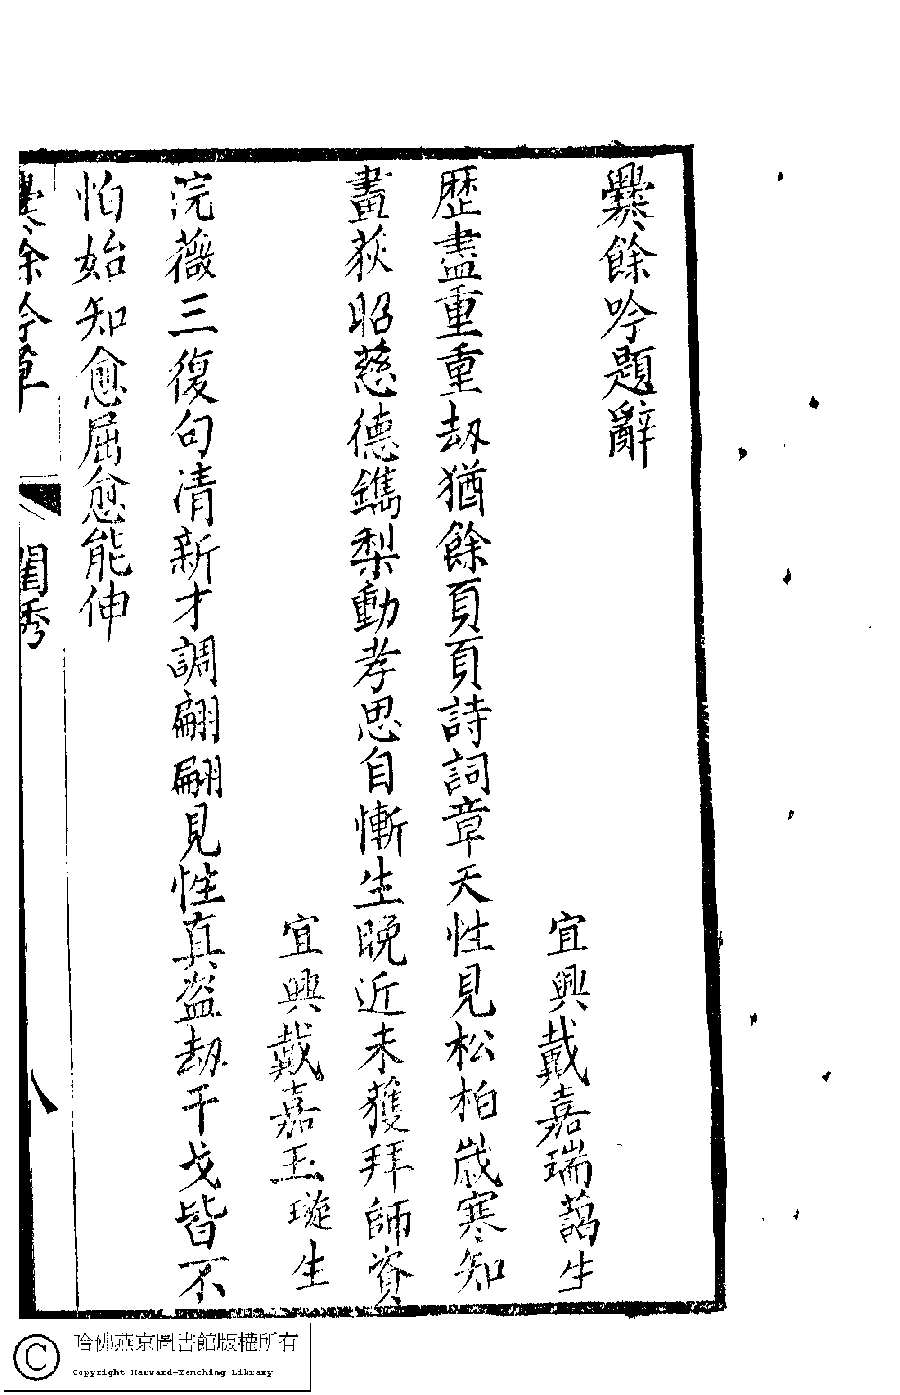 爨餘吟題辭
宜興戴嘉瑞藹生
歷盡重重劫猶餘頁頁詩詞章天性見松柏歲寒知
畫荻昭慈德鐫梨動孝思自慚生晚近未獲拜師資
宜興戴嘉玉璇生
浣薇三復句清新才調翩翩見性真盜劫干戈皆不
怕始知愈屈愈能伸
爨餘吟草
閨秀
八
哈佛燕京圖書館版權所有
Copyright Harvard-Yenching Library